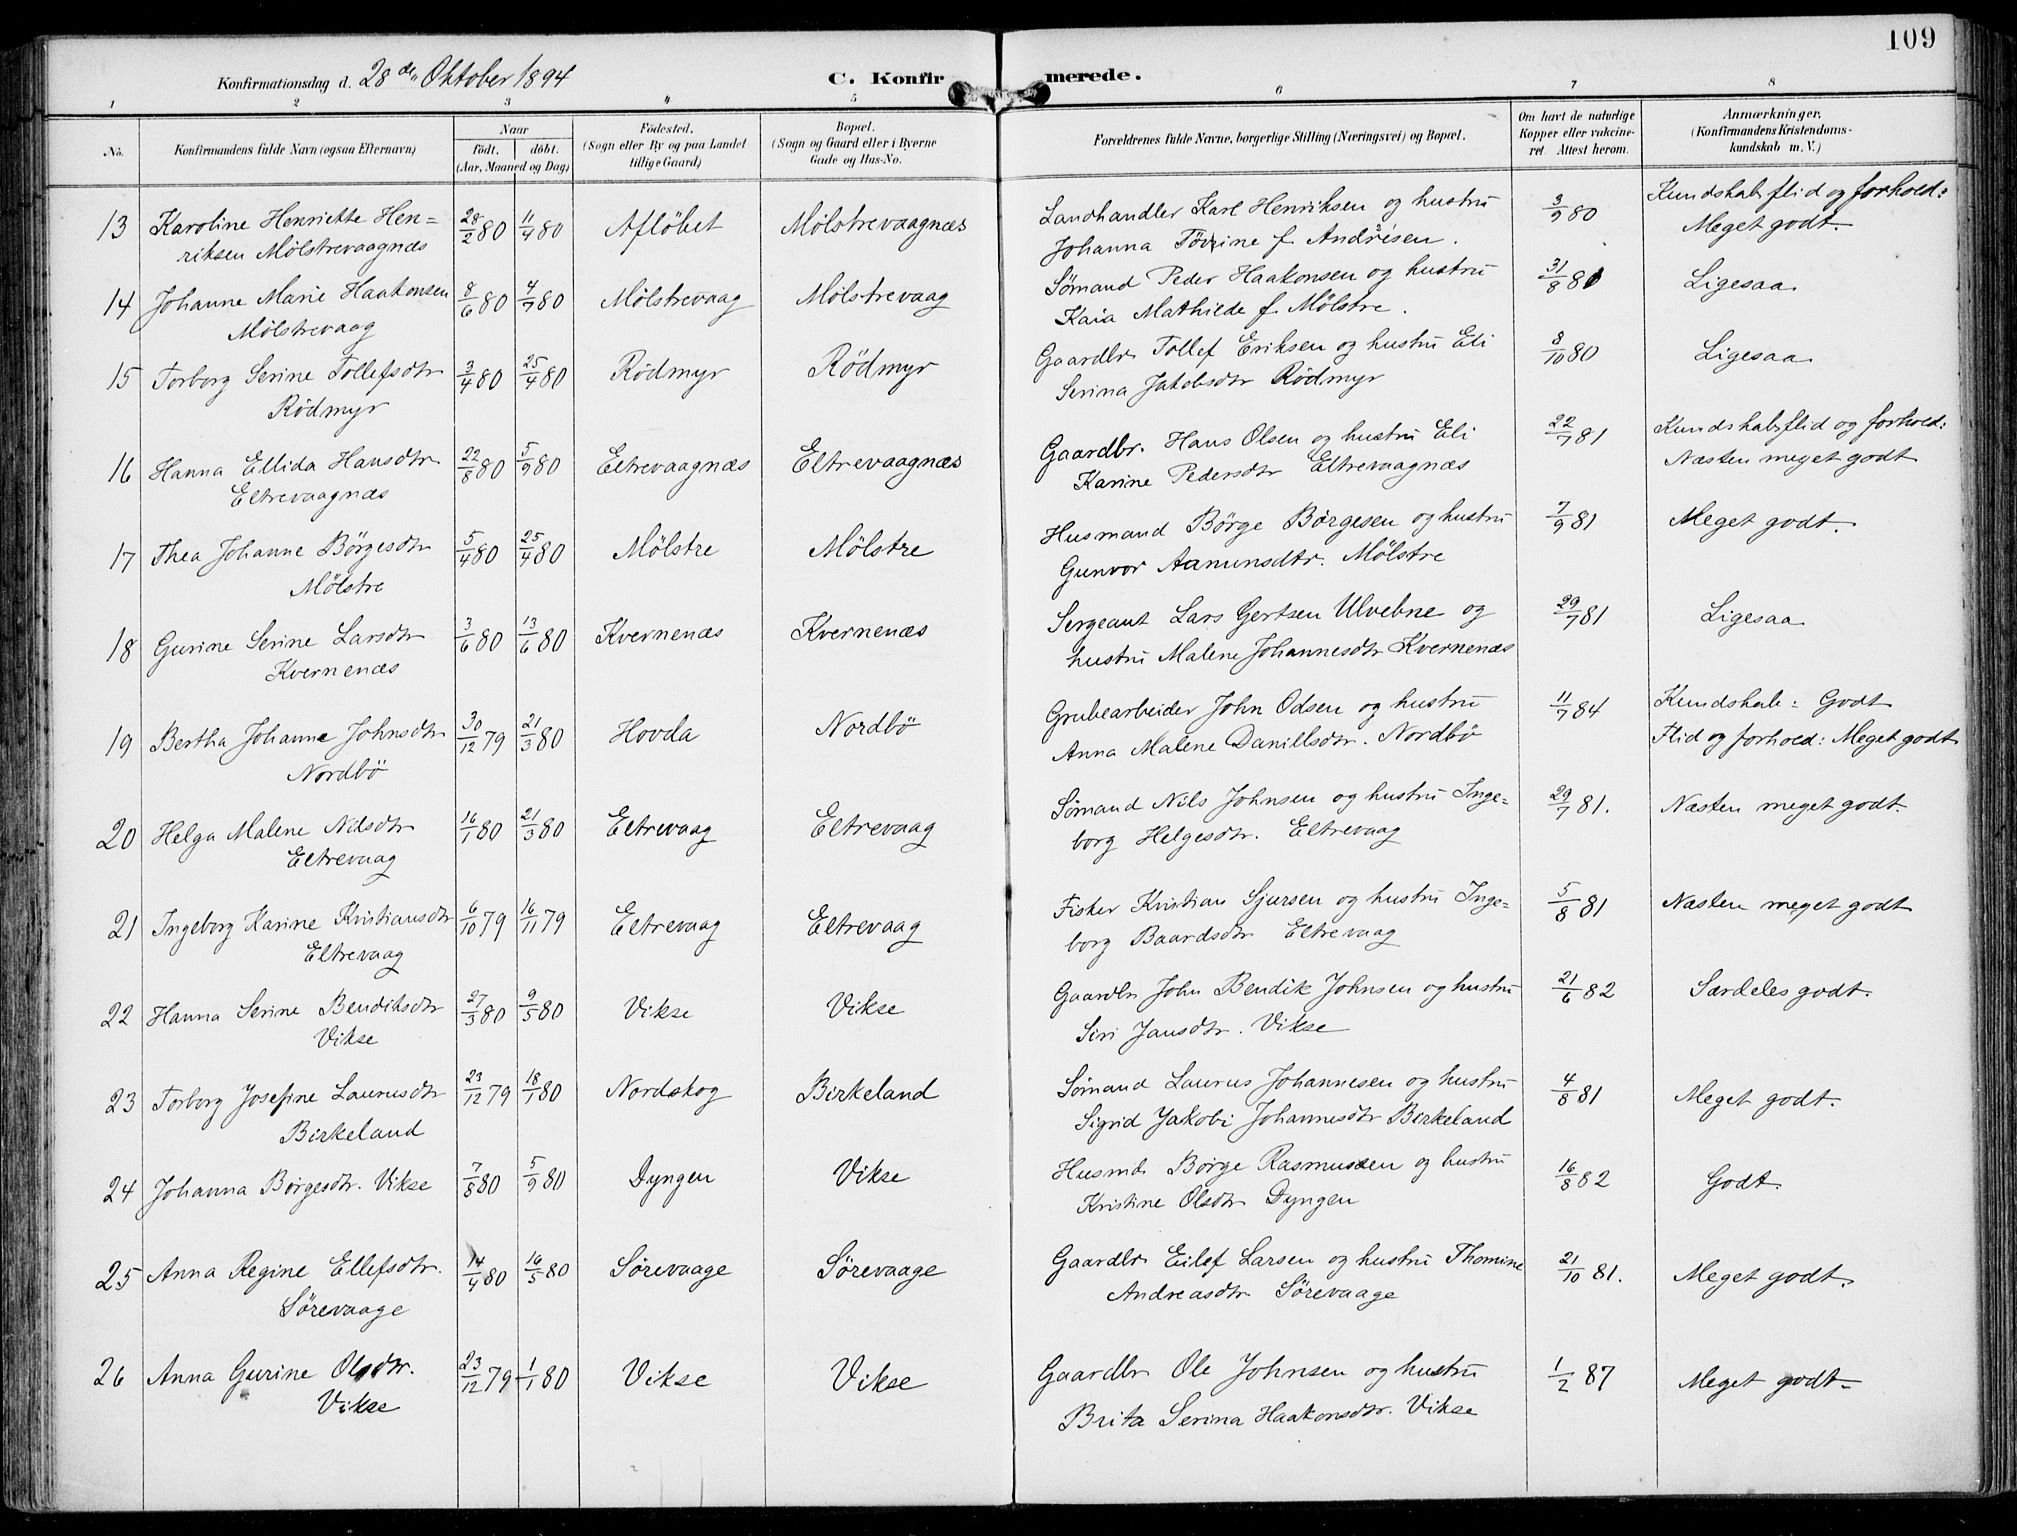 109
Konfirmationsdag d. 28de Oktober 1894
C. Konfirmerede.
1 2 3 4 5 6 7 8
No.
Konfirmandens fulde Navn (ogsaa Efternavn)
Naar
födt. döbt.
(Aar, Maaned og Dag)
Födested.
(Sogn eller By og paa Landet
tillige Gaard)
Bopæl.
(Sogn og Gaard eller i Byerne
Gade og Hus-No.
Forældrenes fulde Navne, borgerlige Stilling (Næringsvei) og Bopæl.
Om havt de naturlige
Kopper eller vakcine-
ret. Attest herom.
Anmærkninger,
(Konfirmandens Kristendoms-
kundskab m. V.)
13 Karoline Henriette Hen= 28/2 80 11/4 80 Aflöbet Mølstrevaagnæs Landhandler Karl Henriksen og hustru 3/9 80 Kundskab, flid og forhold:
riksen Mølstrevaagnæs Johanna f. Andrésen. Meget godt.
14 Johanne Marie Haakonsen 8/6 80 4/7 80 Mölstrevaag Mølstrevaag Sømand Peder Haakonsen og hustru 31/8 81 Ligesaa
Mølstrevaag Kaia Mathilde f. Mølstre.
15 Torborg Serine Tollefsdtr 3/4 80 25/4 80 Rödmyr Rödmyr Gaardbr Tollef Eriksen og hustru Eli 8/10 80 Ligesaa
Rödmyr Serina Jakobsdtr Rödmyr
16 Hanna Ellida Hansdtr 22/8 80 5/9 80 Eltrevaagnæs Eltrevaagnæs Gaardbr. Hans Olsen og hustru Eli 22/7 81 Kundskab, flid og forhold:
Eltrevaagnæs Karine Pedersdtr Eltrevaagnæs Næsten meget godt
17 Thea Johanne Börgesdtr 5/4 80 25/4 80 Mölstre Mölstre Husmand Börge Börgesen og hustru 7/9 81 Meget godt.
Mölstre Gunvor Aamunsdtr. Mölstre
18 Gurine Serine Larsdtr 3/6 80 13/6 80 Kvernenæs Kvernenæs Sergeant Lars Gertsen Ulvebne og 29/7 81 Ligesaa
Kvernenæs hustru Malene Johannesdtr Kvernenæs
19 Bertha Johanne Johnsdtr 30/12 79 21/3 80 Hovda Nordbö Grubearbeider John Odsen og hustru 11/7 84 Kundskab: Godt
Nordbö Anna Malene Danillsdtr. Nordbö Flid og forhold: Meget godt
20 Helga Malene Nilsdtr 16/1 80 21/3 80 Eltrevaag Eltrevaag Sømand Nils Johnsen og hustru Inge= 29/7 81. Næsten meget godt.
Eltrevaag borg Helgesdtr. Eltrevaag
21 Ingeborg Karine Kristiansdtr 6/10 79 16/11 79 Eltrevaag Eltrevaag Fisker Kristian Sjursen og hustru Inge= 5/8 81 Næsten meget godt
Eltrevaag borg Baardsdtr Eltrevaag
22 Hanna Serine Bendiksdtr 27/3 80 9/5 80 Vikse Vikse Gaardbr John Bendik Johnsen og hustru 21/6 82 Særdeles godt.
Vikse Siri Jansdtr. Vikse
23 Torborg Josefine Laurusdtr 23/12 79 18/1 80 Nordskog Birkeland Sømand Laurus Johannesen og hustru 4/8 81 Meget godt.
Birkeland Sigrid Jakobi Johannesdtr Birkeland
24 Johanna Börgesdtr. Vikse 7/8 80 5/9 80 Dyngen Vikse Husmd. Börge Rasmussen og hustru 16/8 82 Godt.
Kristine Olsdtr Dyngen
25 Anna Regine Ellefsdtr. 14/4 80 16/5 80 Sörevaage Sörevaage Gaardbr Eilef Larsen og hustru Thomine 21/10 81. Meget godt.
Sörevaage Andreasdtr Sörevaage
26 Anna Gurine Olsdtr. 23/12 79 1/1 80 Vikse Vikse Gaardbr Ole Johnsen og hustru 1/2 87 Meget godt.
Vikse Brita Serina Haakonsdtr. Vikse